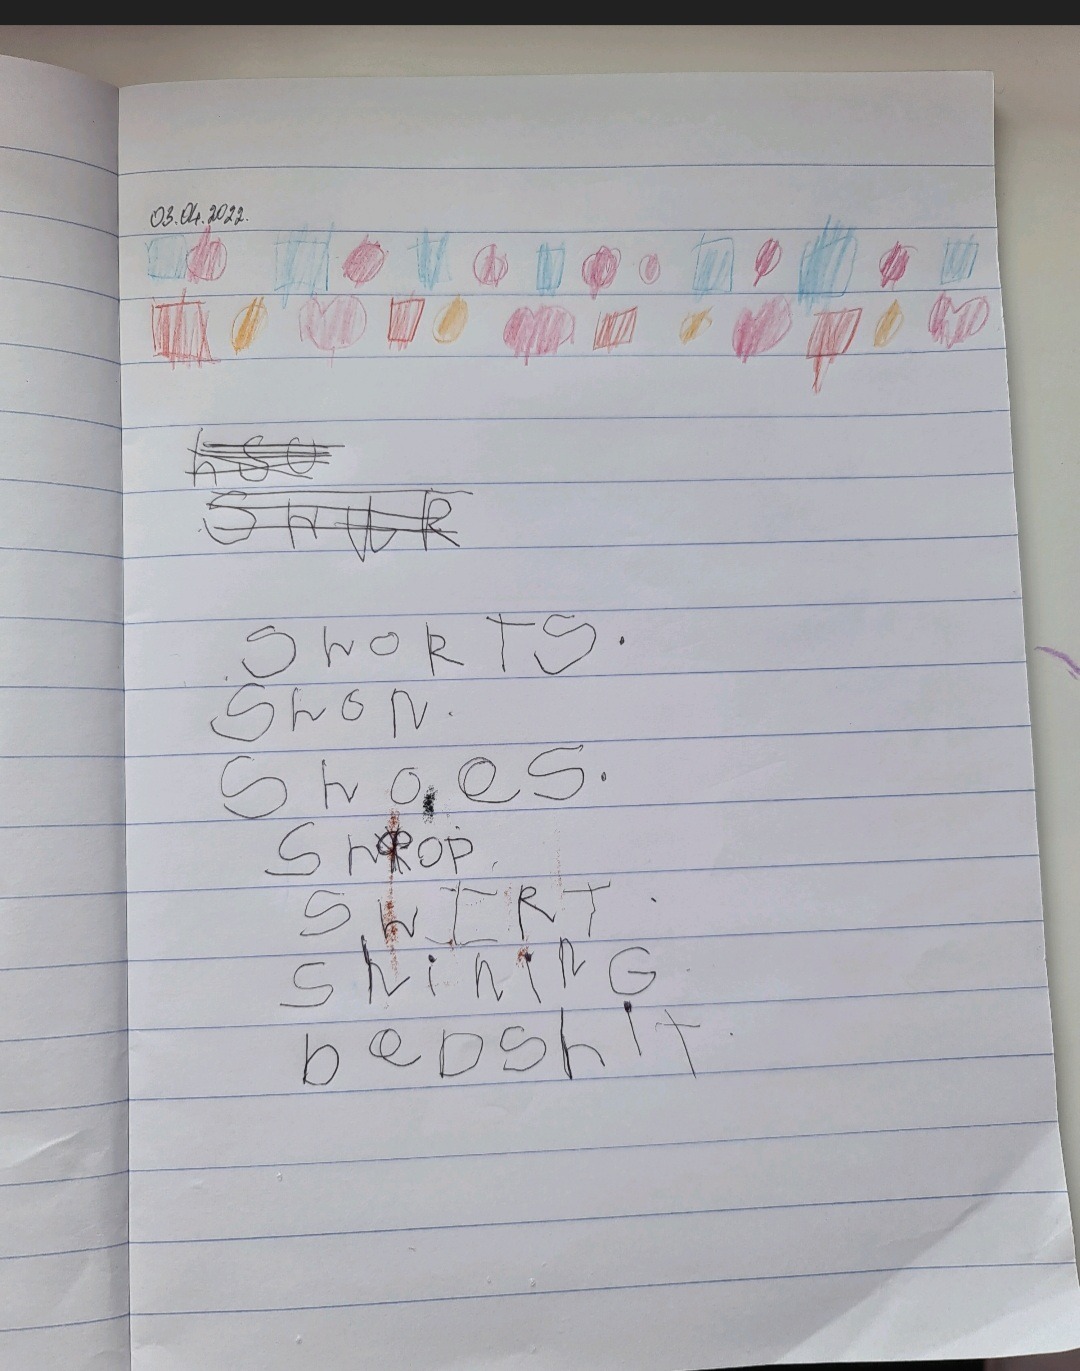 03.04.2022.
hSU
ShWR
ShORTS.
ShON.
ShoeS.
ShROP.
ShIRT.
ShiNiNG
beDShit.